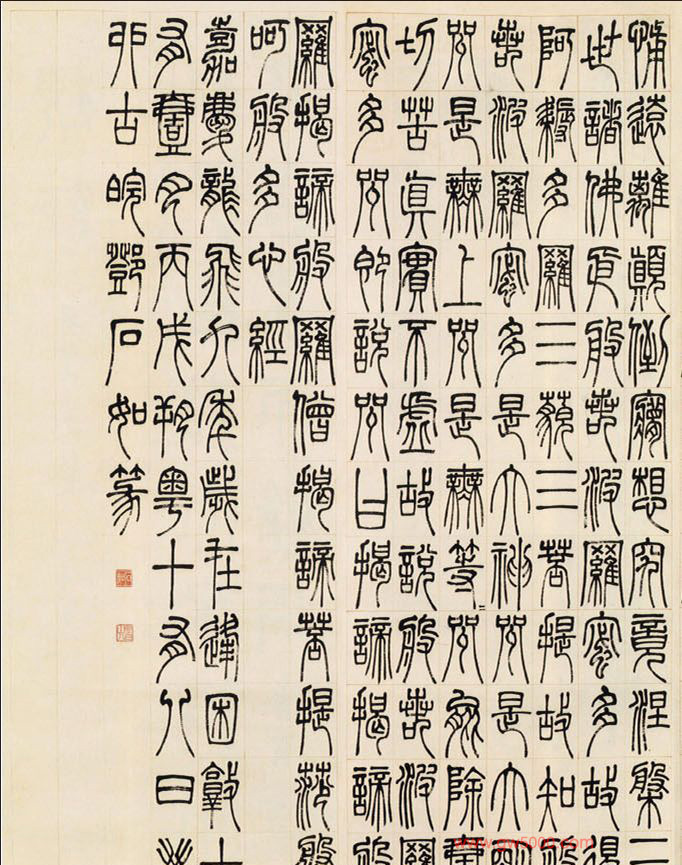 怖遠離顛倒夢想究竟涅槃三
世諸佛依般若波羅蜜多故得
阿耨多羅三藐三菩提故知般
若波羅蜜多是大神咒是大明
咒是無上咒是無等=咒能除壹
切苦真實不虛故說般若波羅
蜜多咒即說咒曰揭諦揭諦般
羅揭諦般羅僧揭諦菩提薩般
呵般多心經
嘉慶龍飛九年歲在逢困敦十
有壹月丙戌朔粵十有八日
古皖鄧石如篆
www.gw5000.com